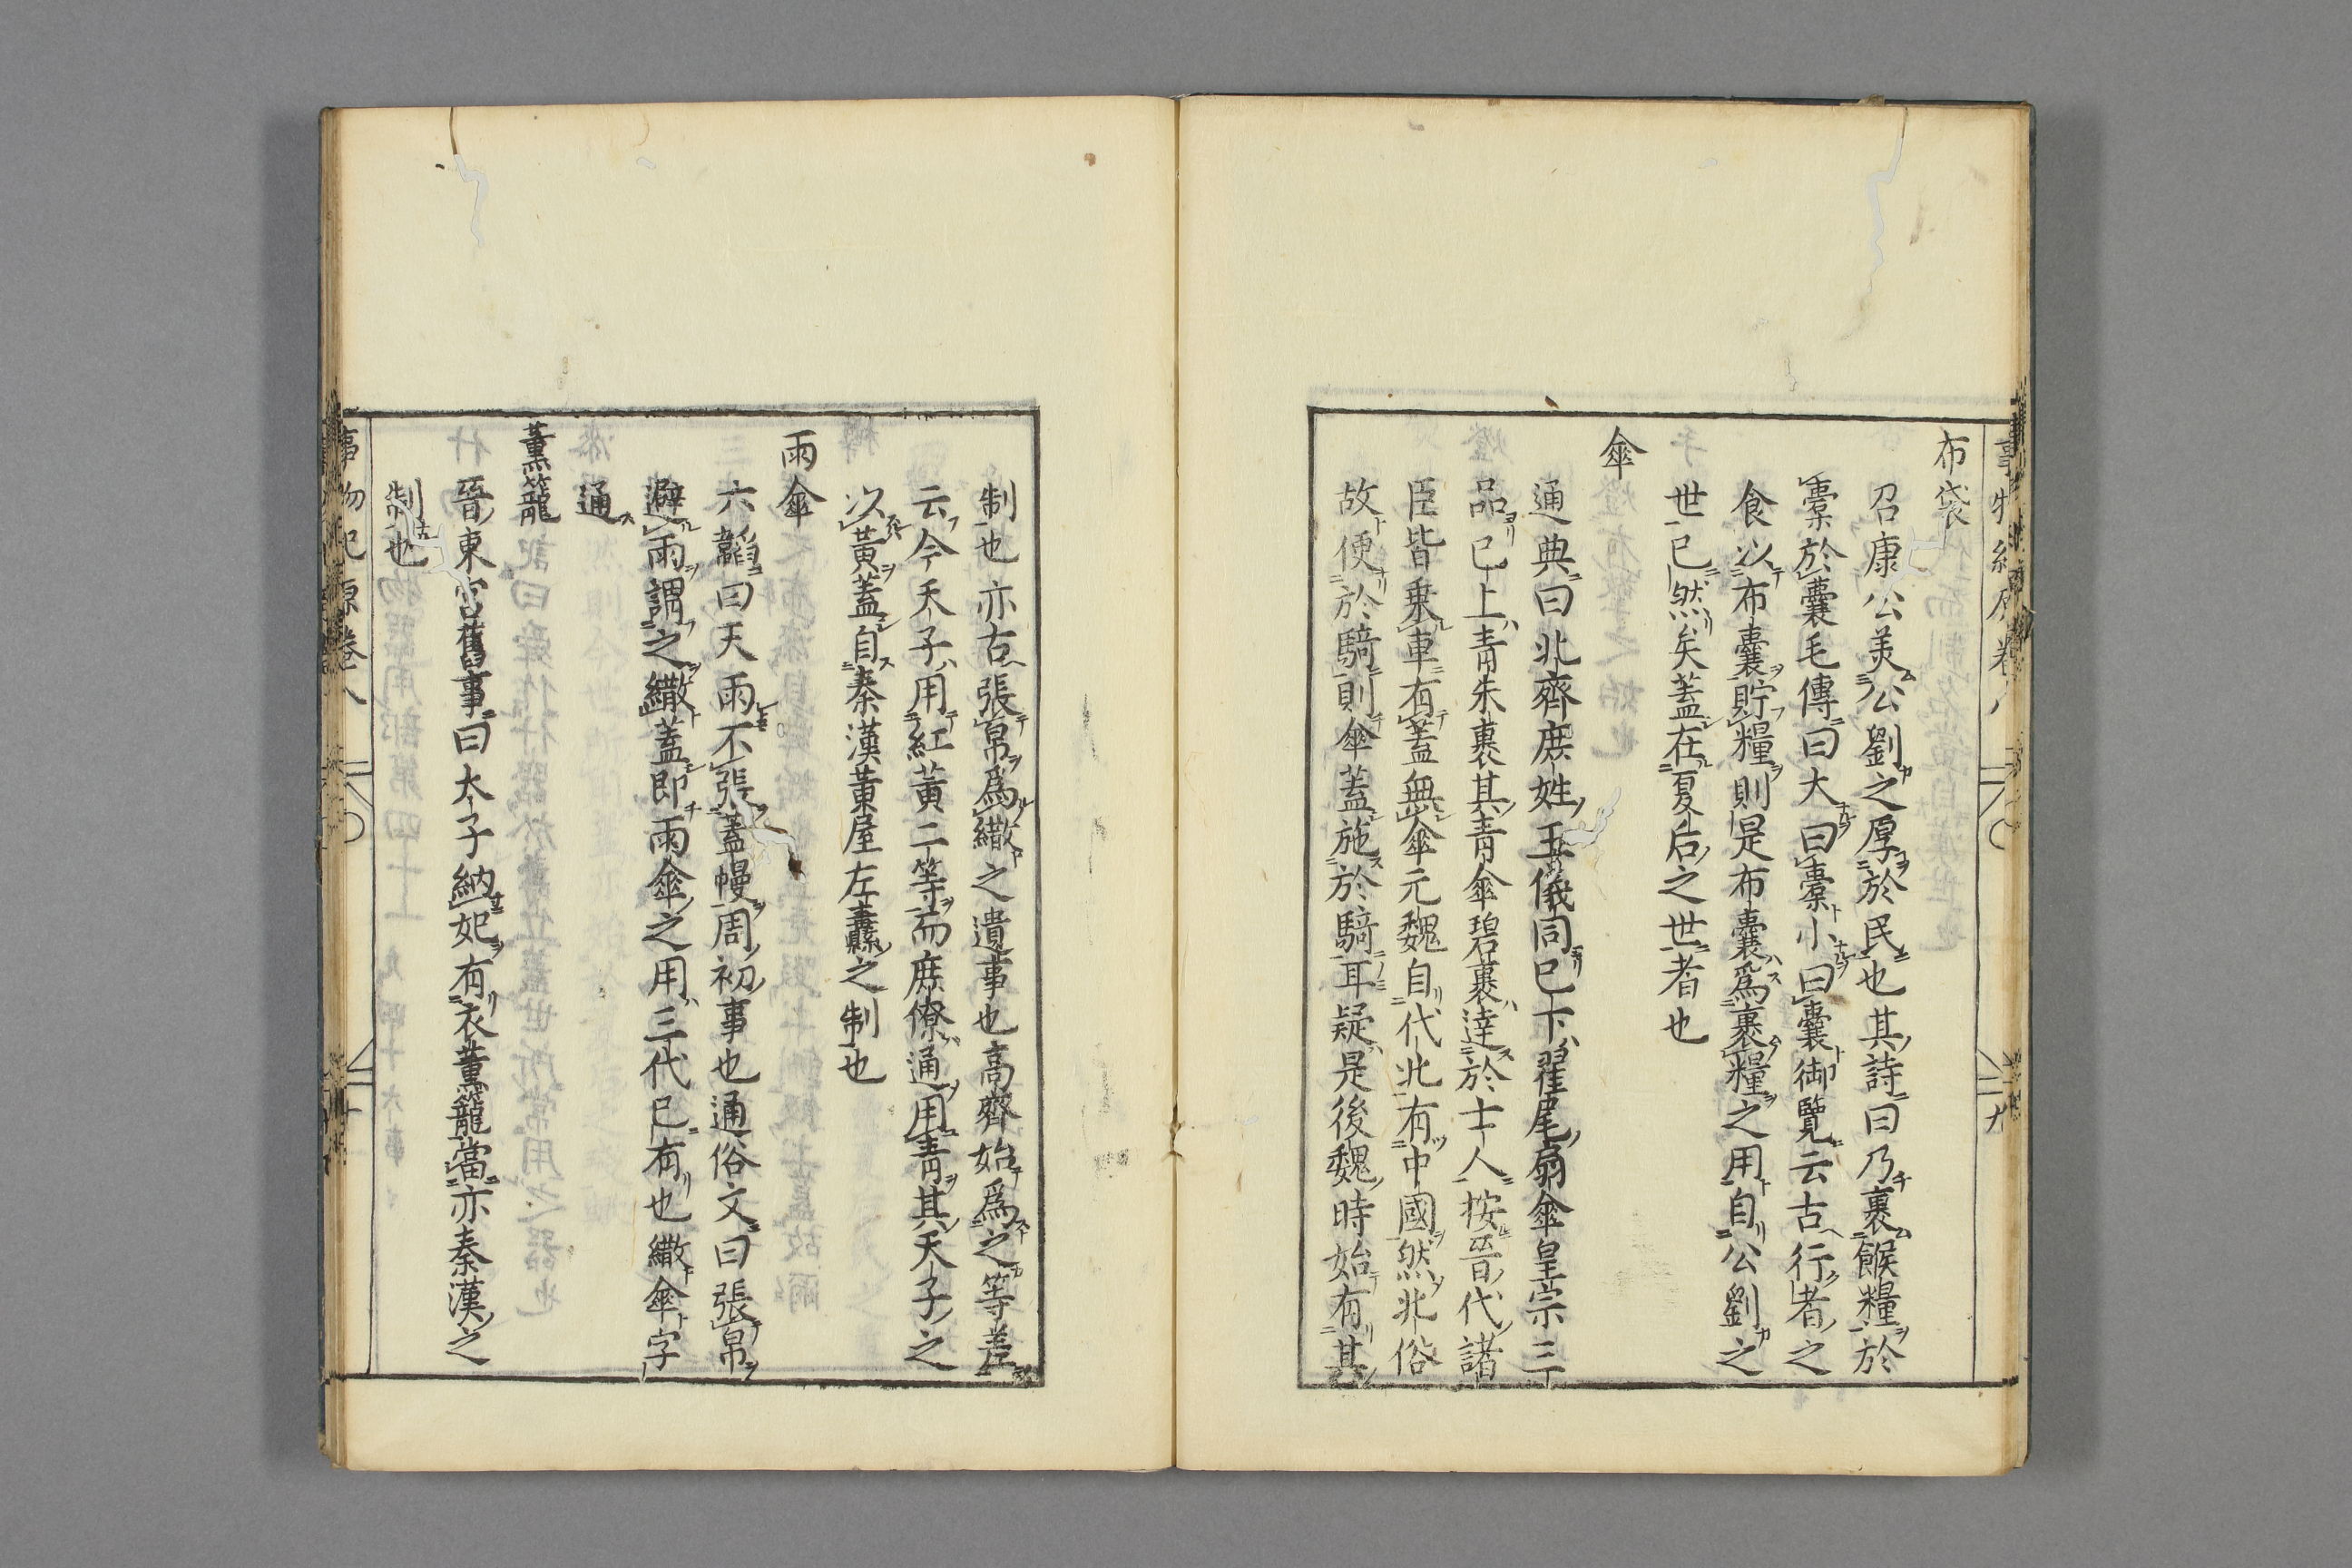 布袋
召康公美公劉之厚於民也其詩曰乃裹餱糧於
橐於囊毛傳曰大曰橐小曰囊御覽云古行者之
食以布囊貯糧則是布囊爲裹糧之用自公劉之
世已然矣蓋在夏后之世者也
傘
通典曰北齊庶姓王儀同已下翟尾扇傘皇宗三
品已上青朱裹其青傘碧裹達於士人按晉代諸
臣皆乗車有蓋無傘元魏自代北有中國然北俗
故便於騎則傘蓋施於騎耳疑是後魏時始有其
制也亦古張帛爲繖之遺事也高齊始爲之等差
云今天子用紅黃二等而庶僚通用青其天子之
以黃蓋自秦漢黃屋左纛之制也
雨傘
六韜曰天雨不張蓋幔周初事也通俗文曰張帛
避雨謂之繖蓋即雨傘之用三代已有也繖傘字
通
薰籠
晉東宮舊事曰太子納妃有衣薰籠當亦秦漢之
制也
事物紀原卷八